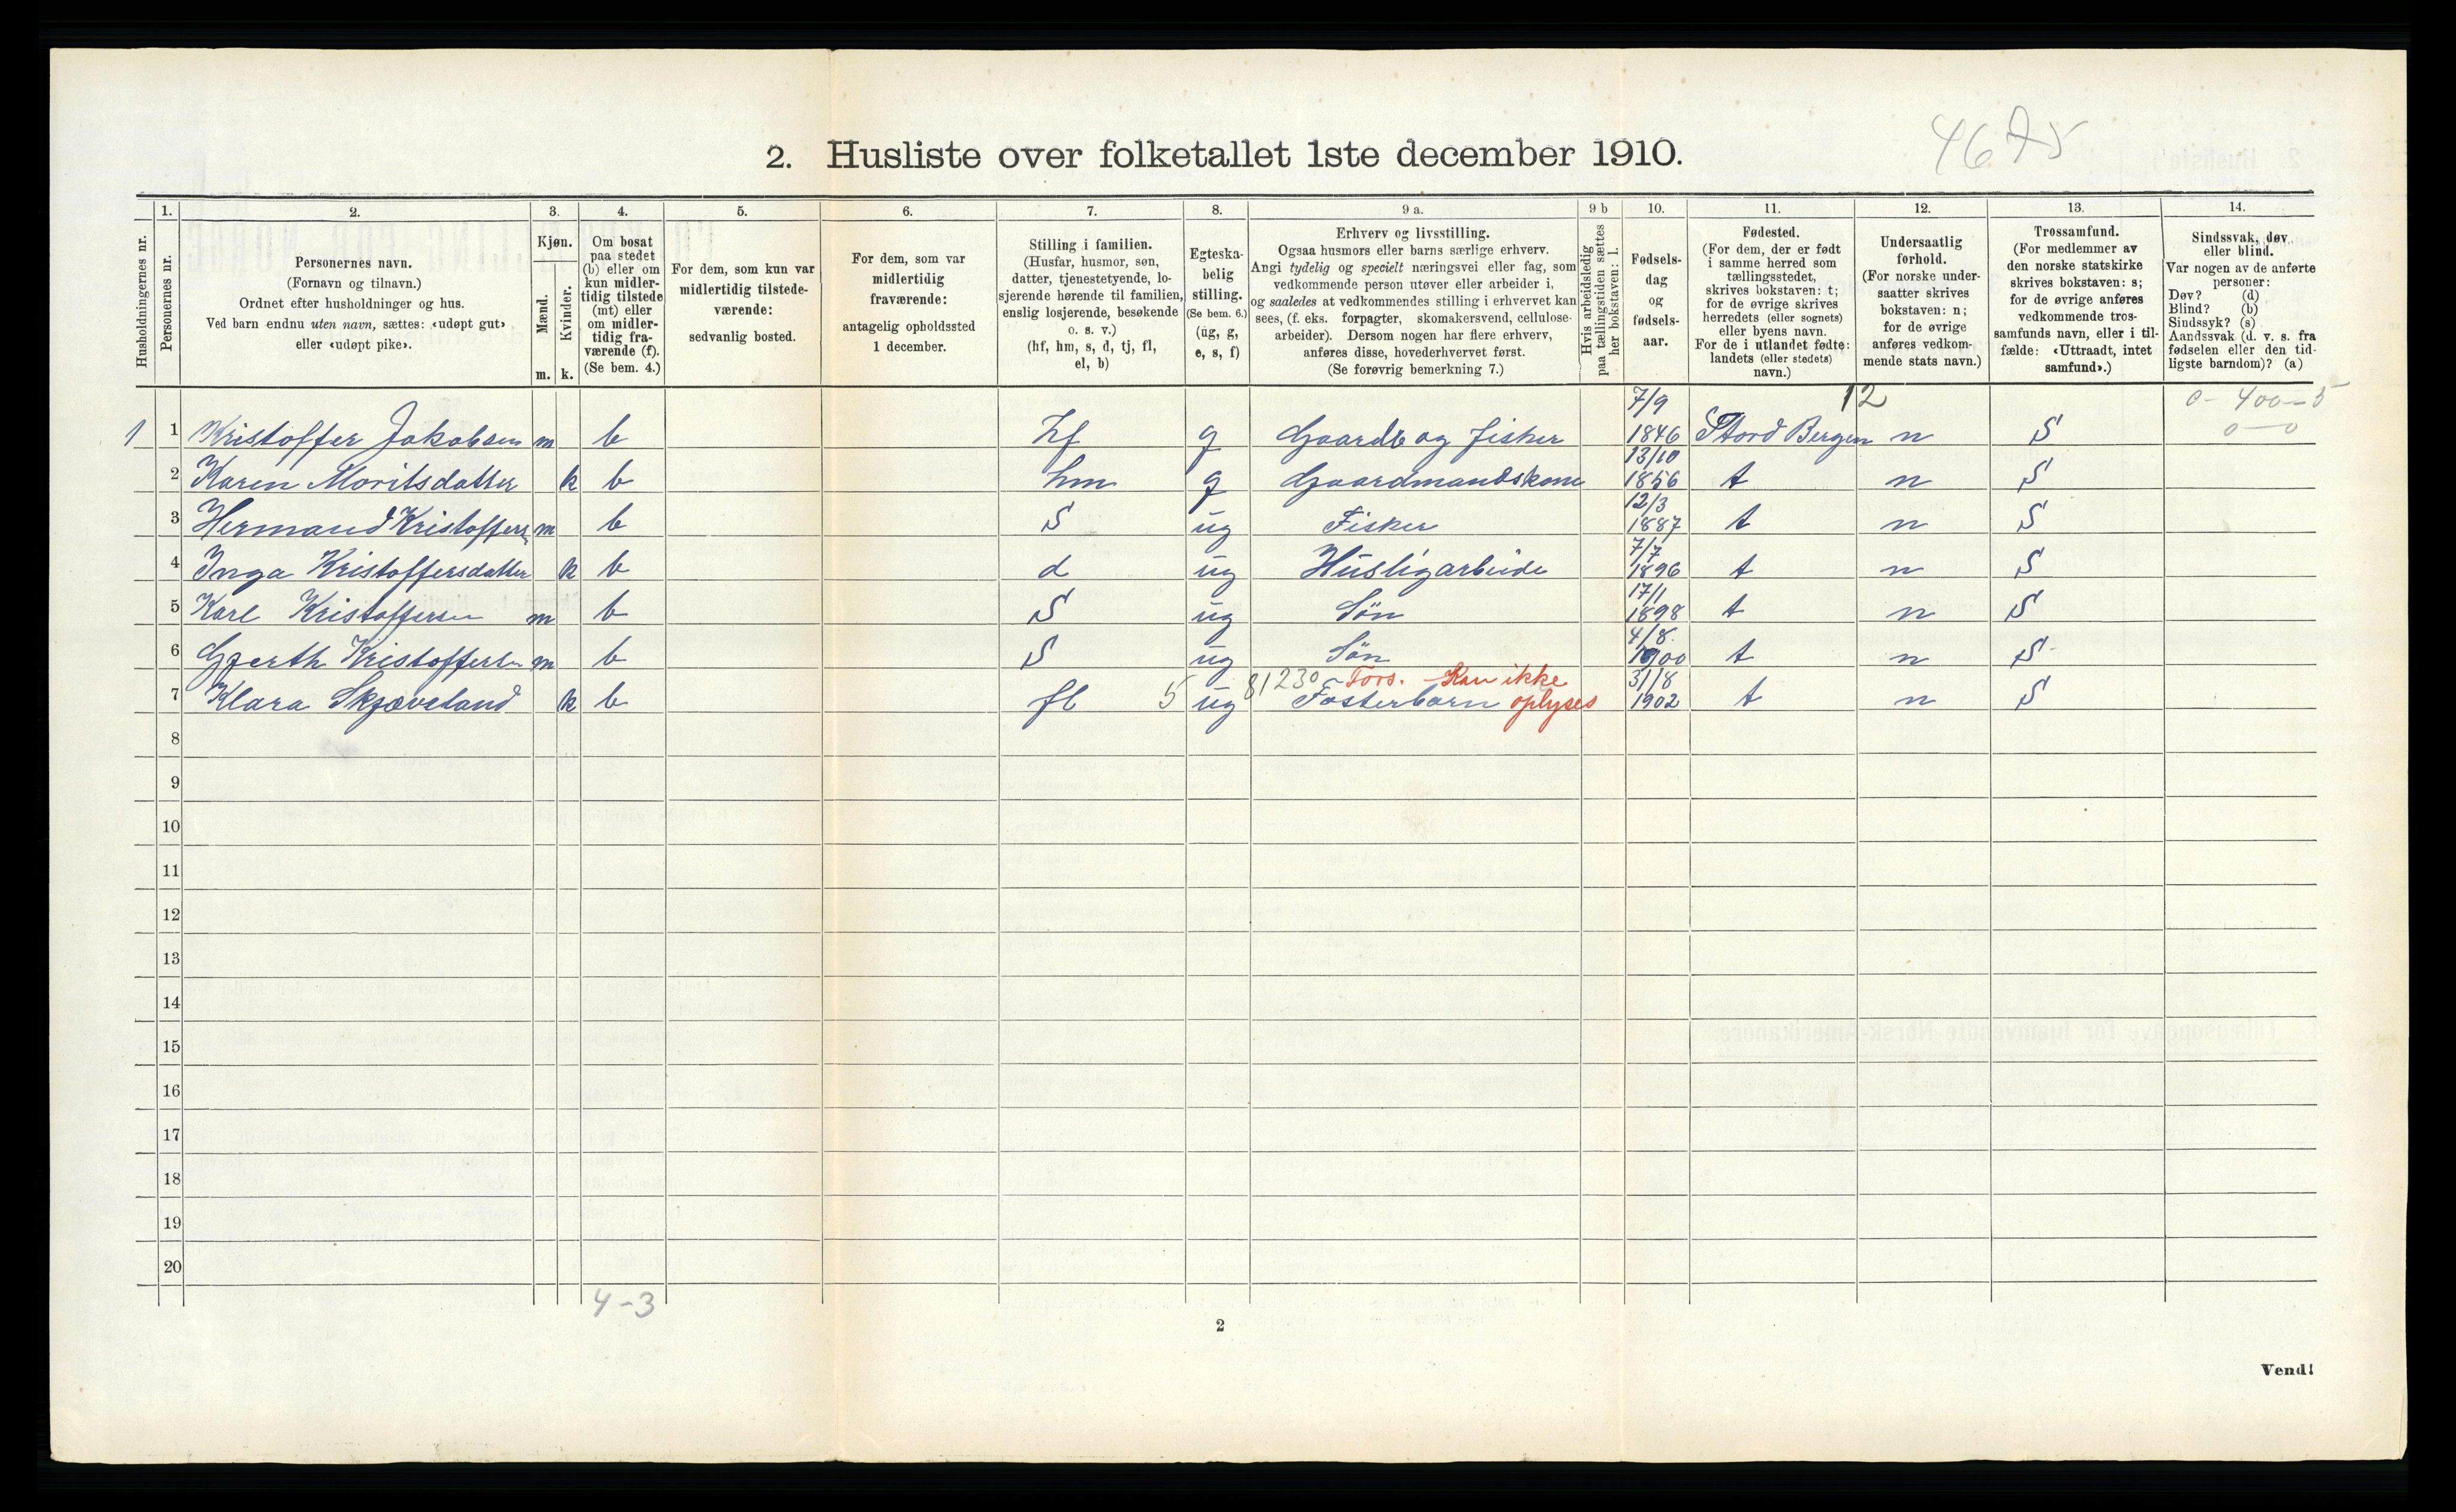 4675
2. Husliste over folketallet 1ste december 1910.
Husholdningernes nr.
1.
Personernes nr.
2.
Personernes navn.
(Fornavn og tilnavn.)
Ordnet efter husholdninger og hus.
Ved barn endnu uten navn, sættes: «udøpt gut»
eller «udøpt pike».
3.
Kjøn.
Mænd.
Kvinder.
m. k.
4.
Om bosat
paa stedet
(b) eller om
kun midler-
tidig tilstede
(mt) eller
om midler-
tidig fra-
værende (f).
(Se bem. 4.)
5.
For dem, som kun var
midlertidig tilstede-
værende:
sedvanlig bosted.
6.
For dem, som var
midlertidig
fraværende:
antagelig opholdssted
1 december.
7.
Stilling i familien.
(Husfar, husmor, søn,
datter, tjenestetyende, lo-
sjerende hørende til familien,
enslig losjerende, besøkende
o. s. v.)
(hf, hm, s, d, tj, fl,
el, b)
8.
Egteska-
belig
stilling.
(Se bem. 6.)
(ug, g,
e, s, f)
9 a.
Erhverv og livsstilling.
Ogsaa husmors eller barns særlige erhverv.
Angi tydelig og specielt næringsvei eller fag, som
vedkommende person utøver eller arbeider i,
og saaledes at vedkommendes stilling i erhvervet kan
sees, (f. eks. forpagter, skomakersvend, cellulose-
arbeider). Dersom nogen har flere erhverv,
anføres disse, hovederhvervet først.
(Se forøvrig bemerkning 7.)
9 b
Hvis arbeidsledig
paa tællingstiden sættes
her bokstaven: l.
10.
Fødsels-
dag
og
fødsels-
aar.
11.
Fødested.
(For dem, der er født
i samme herred som
tællingsstedet,
skrives bokstaven: t;
for de øvrige skrives
herredets (eller sognets)
eller byens navn.
For de i utlandet fødte:
landets (eller stedets)
navn.)
12.
Undersaatlig
forhold.
(For norske under-
saatter skrives
bokstaven: n;
for de øvrige
anføres vedkom-
mende stats navn.)
13.
Trossamfund.
(For medlemmer av
den norske statskirke
skrives bokstaven: s;
for de øvrige anføres
vedkommende tros-
samfunds navn, eller i til-
fælde: «Uttraadt, intet
samfund».)
14.
Sindssvak, døv
eller blind.
Var nogen av de anførte
personer:
Døv? (d)
Blind? (b)
Sindssyk? (s)
Aandssvak (d. v. s. fra
fødselen eller den tid-
ligste barndom)? (a)
7/9 12 0-400-5
1 1 Kristoffer Jakobsen m b hf g Gaardb og fisker 1846 Stord Bergen n S 0-0
13/10
2 Karen Moritsdatter k b hm g Gaardmandskone 1856 t n S
12/3
3 Hermand Kristoffers m b S ug Fisker 1887 t n S
7/7
4 Inga Kristoffersdatter k b d ug Husligarbeide 1896 t n S
17/1
5 Karl Kristoffersen m b S ug Søn 1898 t n S
4/8
6 Gjerth Kristoffersen m b S ug Søn 1900 t n S
81230 - Fors. - Kan ikke 31/8
7 Klara Skjæveland k b fl 5 ug Fosterbarn oplyses 1902 t n S
8
9
10
11
12
13
14
15
16
17
18
19
20
4-3
2
Vend!